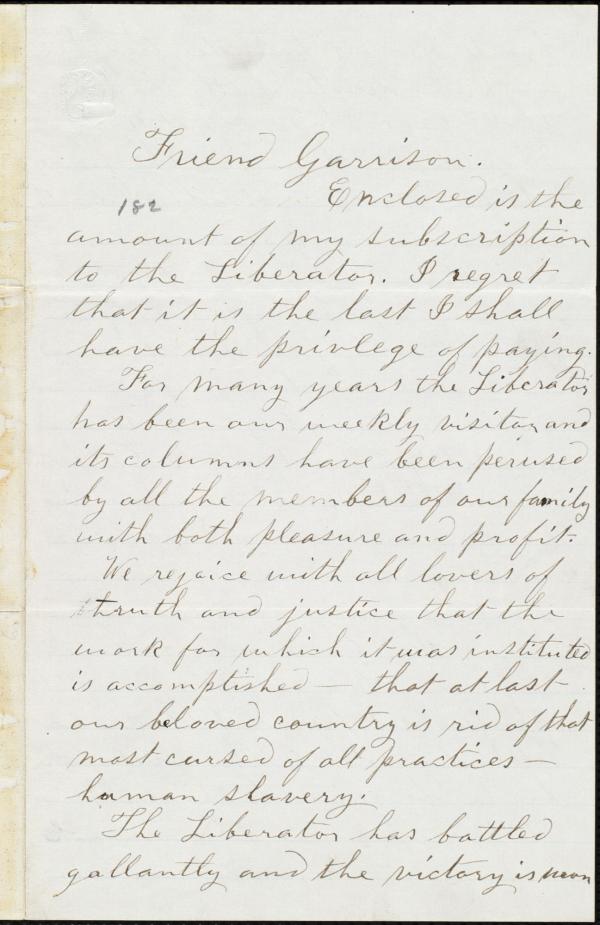 Friend Garrison.
Enclosed is the
182
amount of my subscription
to the Liberator. I regret
that it is the last I shall
have the privlege of paying.
For many years the Liberator
has been our weekly visitor and
its columns have been perused
by all the members of our family
with both pleasure and profit.
We rejoice with all lovers of
truth and justice that the
work for which it was instituted
is accomplished — that at last
our beloved country is rid of that
most cursed of all practices —
human slavery.
The Liberator has battled
gallantly and the victory is won